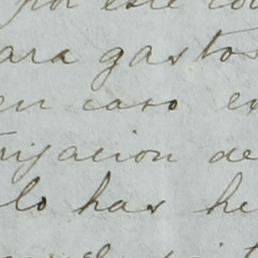 por este co
para gastos
en caso es
rijacion de
lo has he